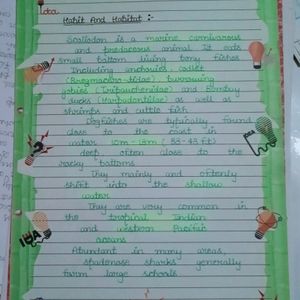 Idea
Habit And Habitat :-
Scoliodon is a marine, carnivorous
and predaceous animal. It eats
small bottom living bony fishes
Including anchovies, codlet
(Bregmacerotidae), burrowing
gobies (Tripauchenidae) and Bombay
ducks (Harpadontidae) as well as
shrimps and cuttle fish.
Dogfishes are typically found
close to the coast in
water 10m - 13m (33-43 ft)
deep, often close to the
rocky bottoms.
They mainly and oftenly
shift into the shallow
water.
They are very common in
the tropical Indian
and western Pacific
oceans
Abundant in many areas,
spadenose sharks generally
form large schools